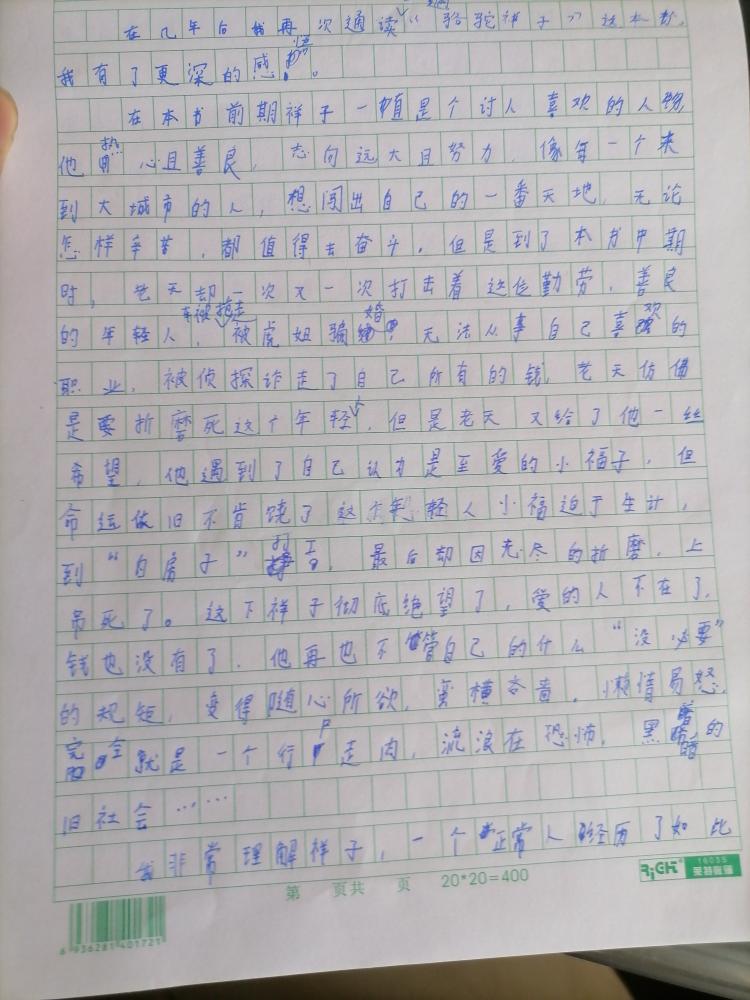 在几年后我再次通读《骆驼祥子》这本书，
我有了更深的感悟。
在本书前期祥子一直是个讨人喜欢的人物，
他热心且善良，志向远大且努力，像每一个来
到大城市的人，想闯出自己的一番天地，无论
怎样辛苦，都值得去奋斗。但是到了本书中期
时，老天却一次又一次打击着这位勤劳、善良
的年轻人，车被抢走，被虎妞骗婚，无法从事自己喜欢的
职业，被侦探诈走了自己所有的钱，老天仿佛
是要折磨死这个年轻，但是老天又给了他一丝
希望，他遇到了自己认为是至爱的小福子，但
命运依旧不肯饶了这年轻人小福迫于生计，
到“白房子”打工，最后却因无尽的折磨，上
吊死了。这下祥子彻底绝望了，爱的人不在了，
钱也没有了，他再也不管自己的什么“没必要”
的规矩，变得随心所欲，蛮横吝啬，懒惰易怒，
完全就是一个行尸走肉，流浪在恐怖，黑暗的
旧社会……
我非常理解祥子，一个正常人经历了如此
RiGHT 16035 莱特智语
第 页共 页 20*20=400
6 936281 401721